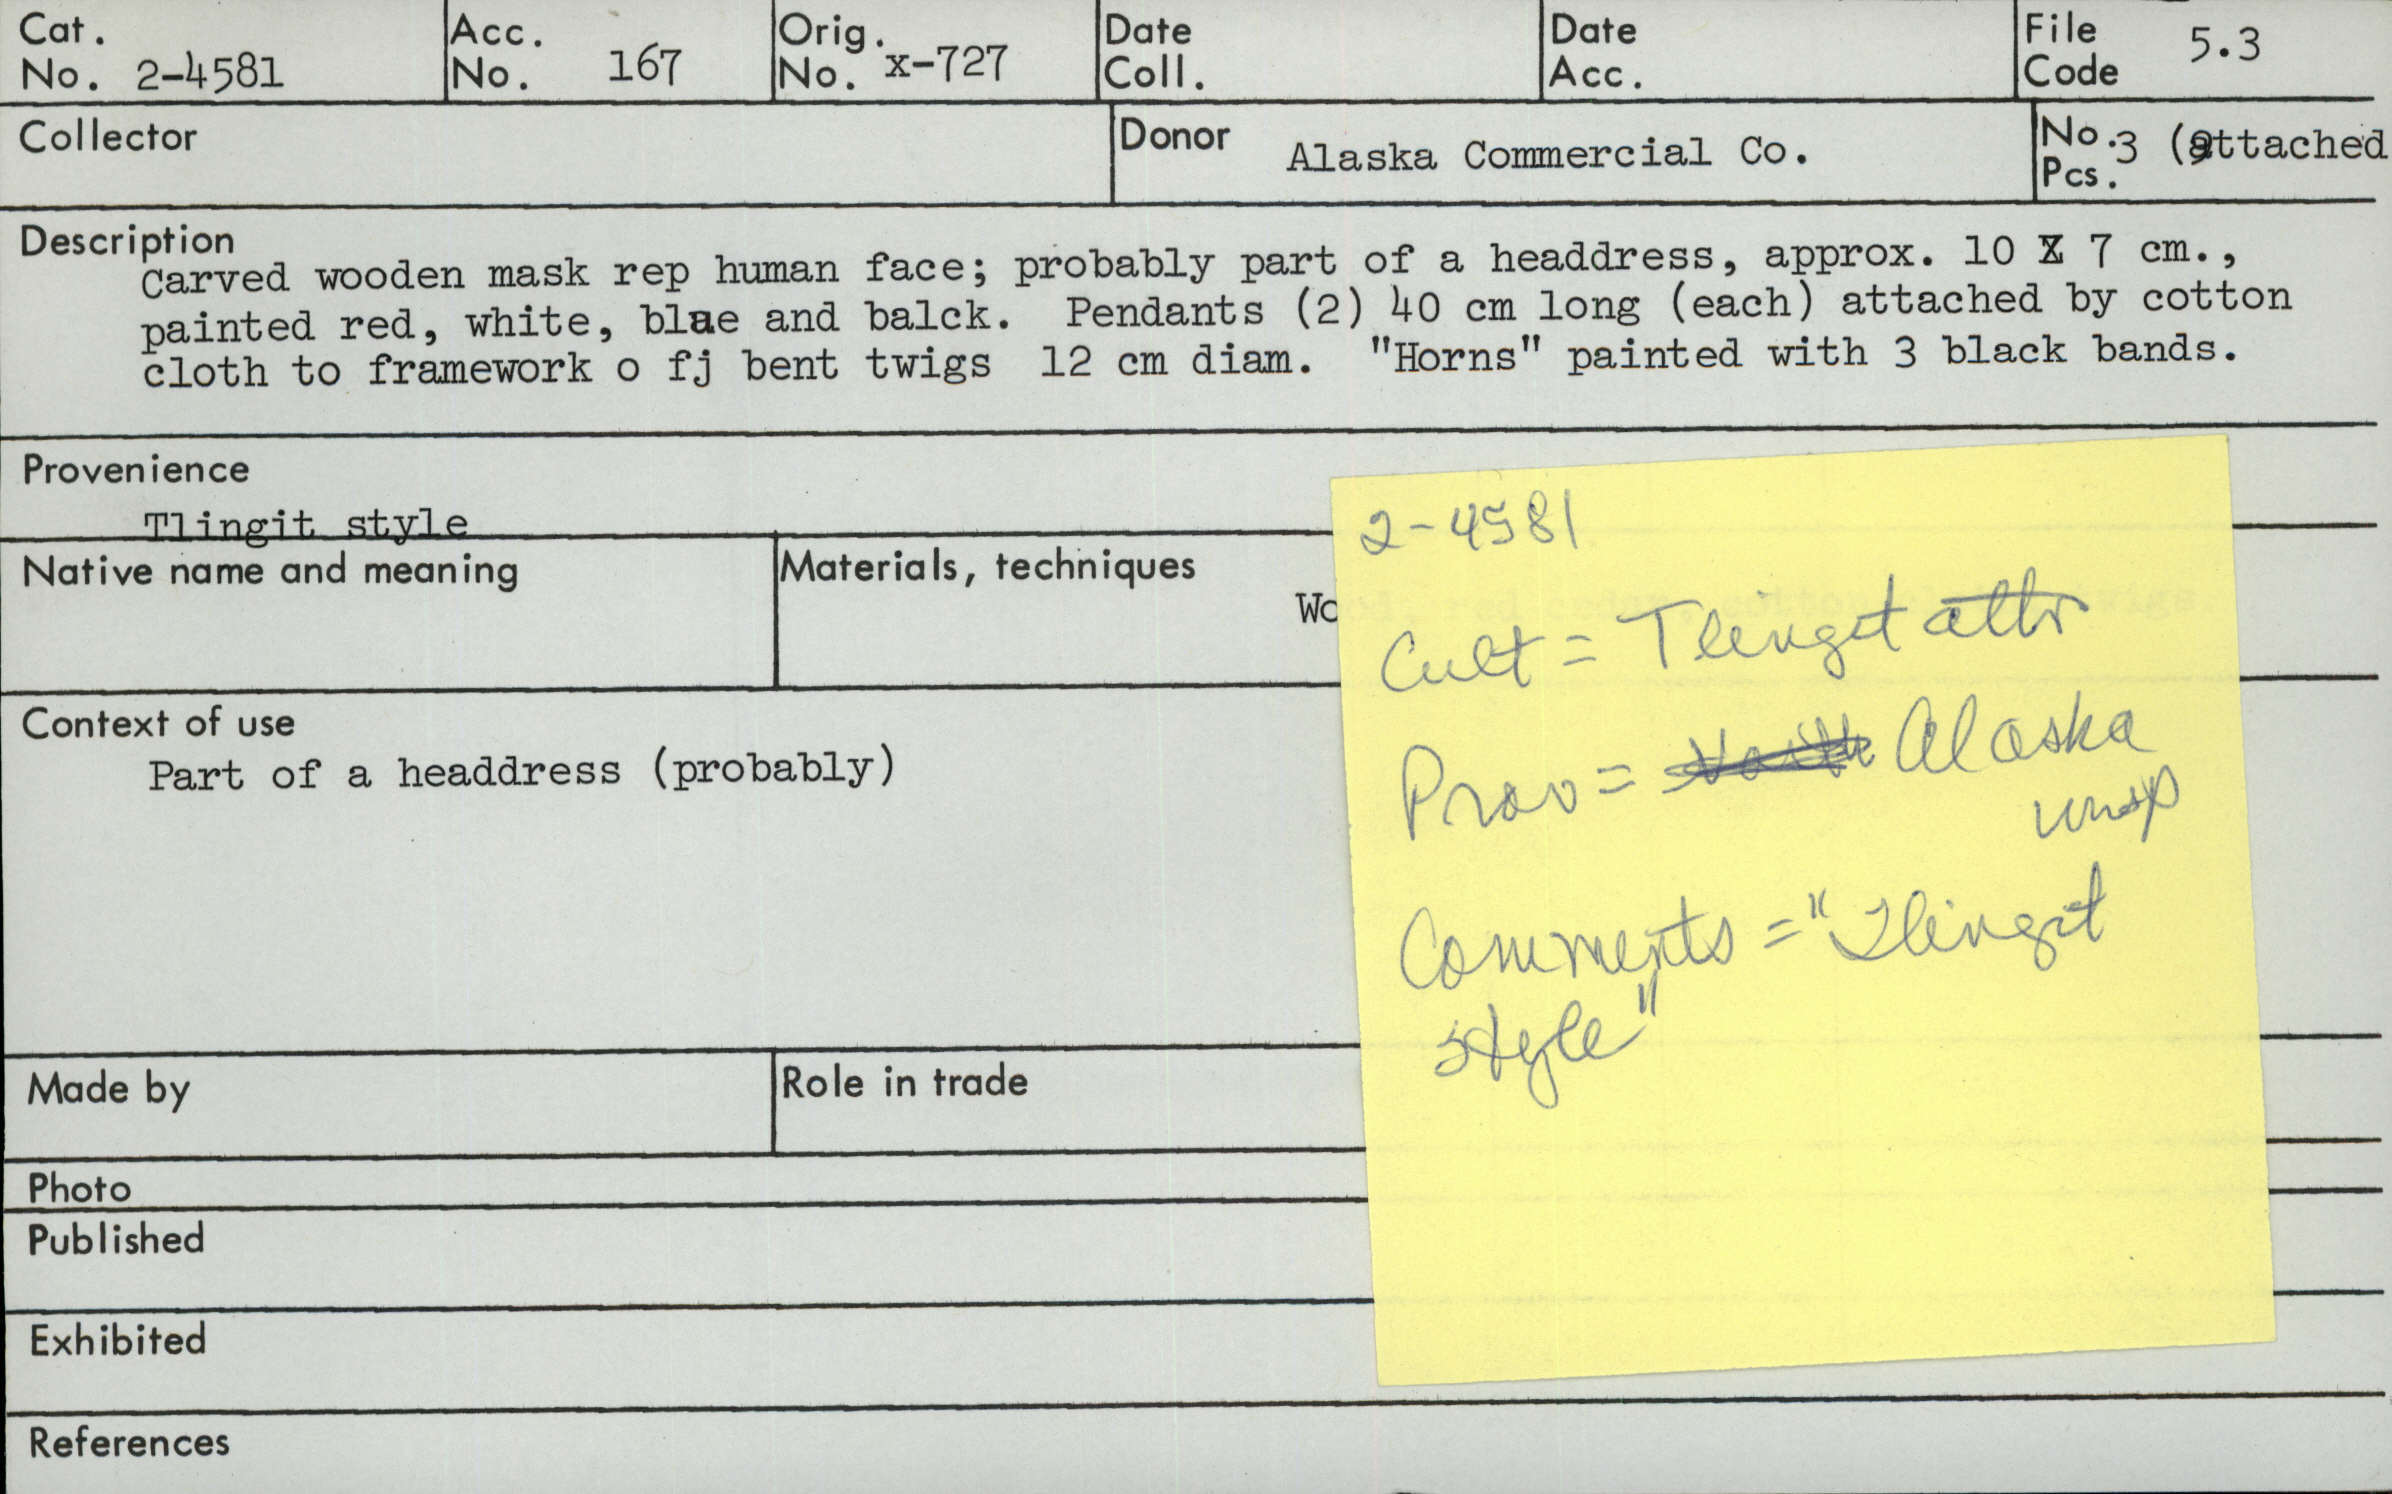 Cat. No. 2-4581
Acc. No. 167
Orig. No. x-727
Date Coll.
Date Acc.
File Code 5.3
Collector
Donor Alaska Commercial Co.
No. Pcs. 3 (attached
Description
Carved wooden mask rep human face; probably part of a headdress, approx. 10 X 7 cm.,
painted red, white, blue and balck. Pendants (2) 40 cm long (each) attached by cotton
cloth to framework o fj bent twigs 12 cm diam. "Horns" painted with 3 black bands.
Provenience
Tlingit style
Native name and meaning
Materials, techniques
Wo
Context of use
Part of a headdress (probably)
Made by
Role in trade
Photo
Published
Exhibited
References
2-4581
Cult = Tlingit attr
Prov = Alaska
unsp
Comments = "Tlingit
style"